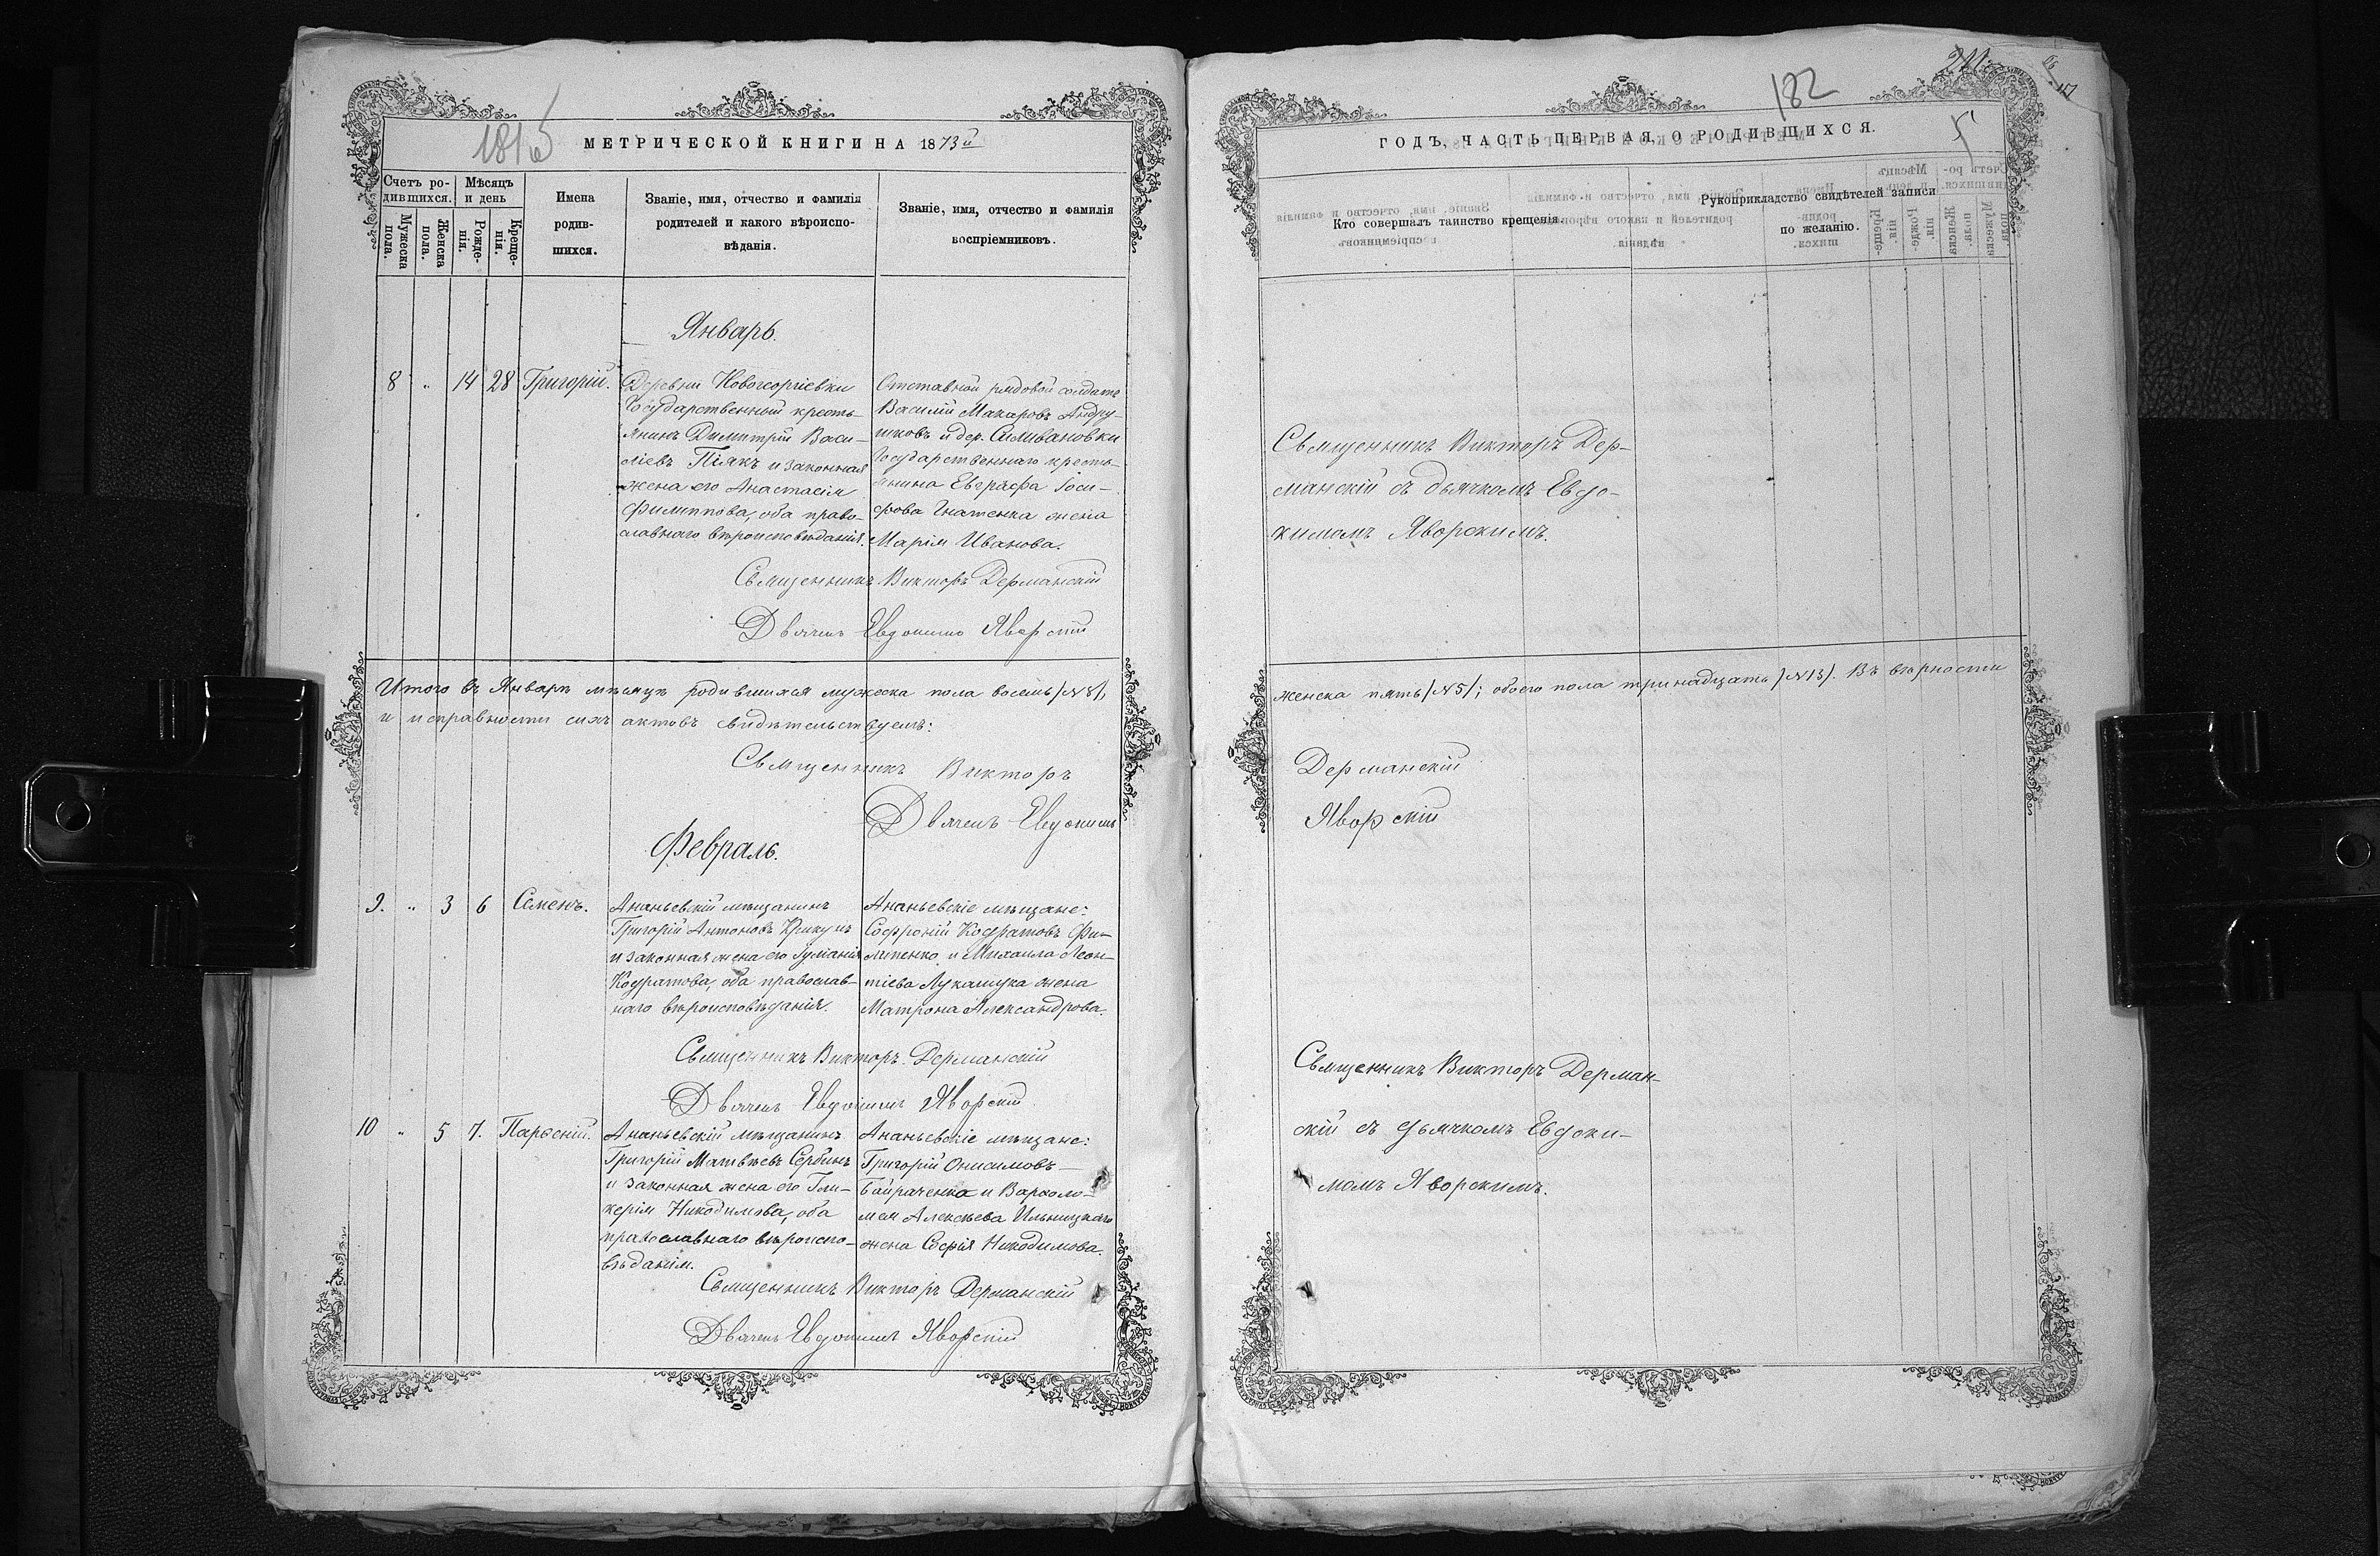 181 об
МЕТРИЧЕСКОЙ КНИГИ НА 1873й
Счетъ ро-
дившихся.
Мѣсяцъ
и день
Мужеска
пола.
Женска
пола.
Рожде-
нія.
Креще-
нія.
Имена
родив-
шихся.
Званіе, имя, отчество и фамилія
родителей и какого вѣроиспо-
вѣданія.
Званіе, имя, отчество и фамилія
воспріемниковъ.
Январь.
8 „ 14 28 Григорій.
Деревни Новогеоргіевки
Государственный кресть-
янинъ Димитрій Васи-
ліевъ Піякъ и законная
жена его Анастасія
Филиппова, оба право-
славнаго вѣроисповѣданія.
Отставной рядовой солдатъ
Василій Макаровъ Андру-
шковъ и дер. Селивановки
Государственнаго кресть-
янина Евграфа Іоси-
фова Гнатенка жена
Марія Иванова.
Священникъ Викторъ Дерманскій
Дьячекъ Евдокимъ Яворскій
Итого въ Январѣ мѣсяцѣ родившихся мужеска пола восемь /№8/,
и исправности сихъ актовъ свидѣтельствуемъ:
Священникъ Викторъ
Дьячекъ Евдокимъ
Февраль.
9. „ 3 6 Семенъ.
Ананьевскій мѣщанинъ
Григорій Антоновъ Крикунъ
и законная жена его Гуманія
Кодратова, оба православ-
наго вѣроисповѣданія.
Ананьевскіе мѣщане:
Софроній Кодратовъ Фи-
липенко и Михаила Леон-
тіева Лукашука жена
Матрона Александрова.
Священникъ Викторъ Дерманскій
Дьячекъ Евдокимъ Яворскій
10 „ 5 7. Парѳеній.
Ананьевскій мѣщанинъ
Григорій Матвѣевъ Сербинъ
и законная жена его Гли-
керія Никодимова, оба
православнаго вѣроиспо-
вѣданія.
Ананьевскіе мѣщане:
Григорій Онисимовъ
Байраченко и Варѳоло-
мея Алексѣева Ильницкаго
жена Софія Никодимова.
Священникъ Викторъ Дерманскій
Дьячекъ Евдокимъ Яворскій
182
5
ГОДЪ, ЧАСТЬ ПЕРВАЯ, О РОДИВШИХСЯ.
Кто совершалъ таинство крещенія.
Рукоприкладство свидѣтелей записи
по желанію.
Священникъ Викторъ Дер-
манскій съ дьячкомъ Евдо-
кимомъ Яворскимъ.
женска пять /№5/; обоего пола тринадцать /№13/. Въ вѣрности
Дерманскій
Яворскій
Священникъ Викторъ Дерман-
скій съ дьячкомъ Евдоки-
момъ Яворскимъ.